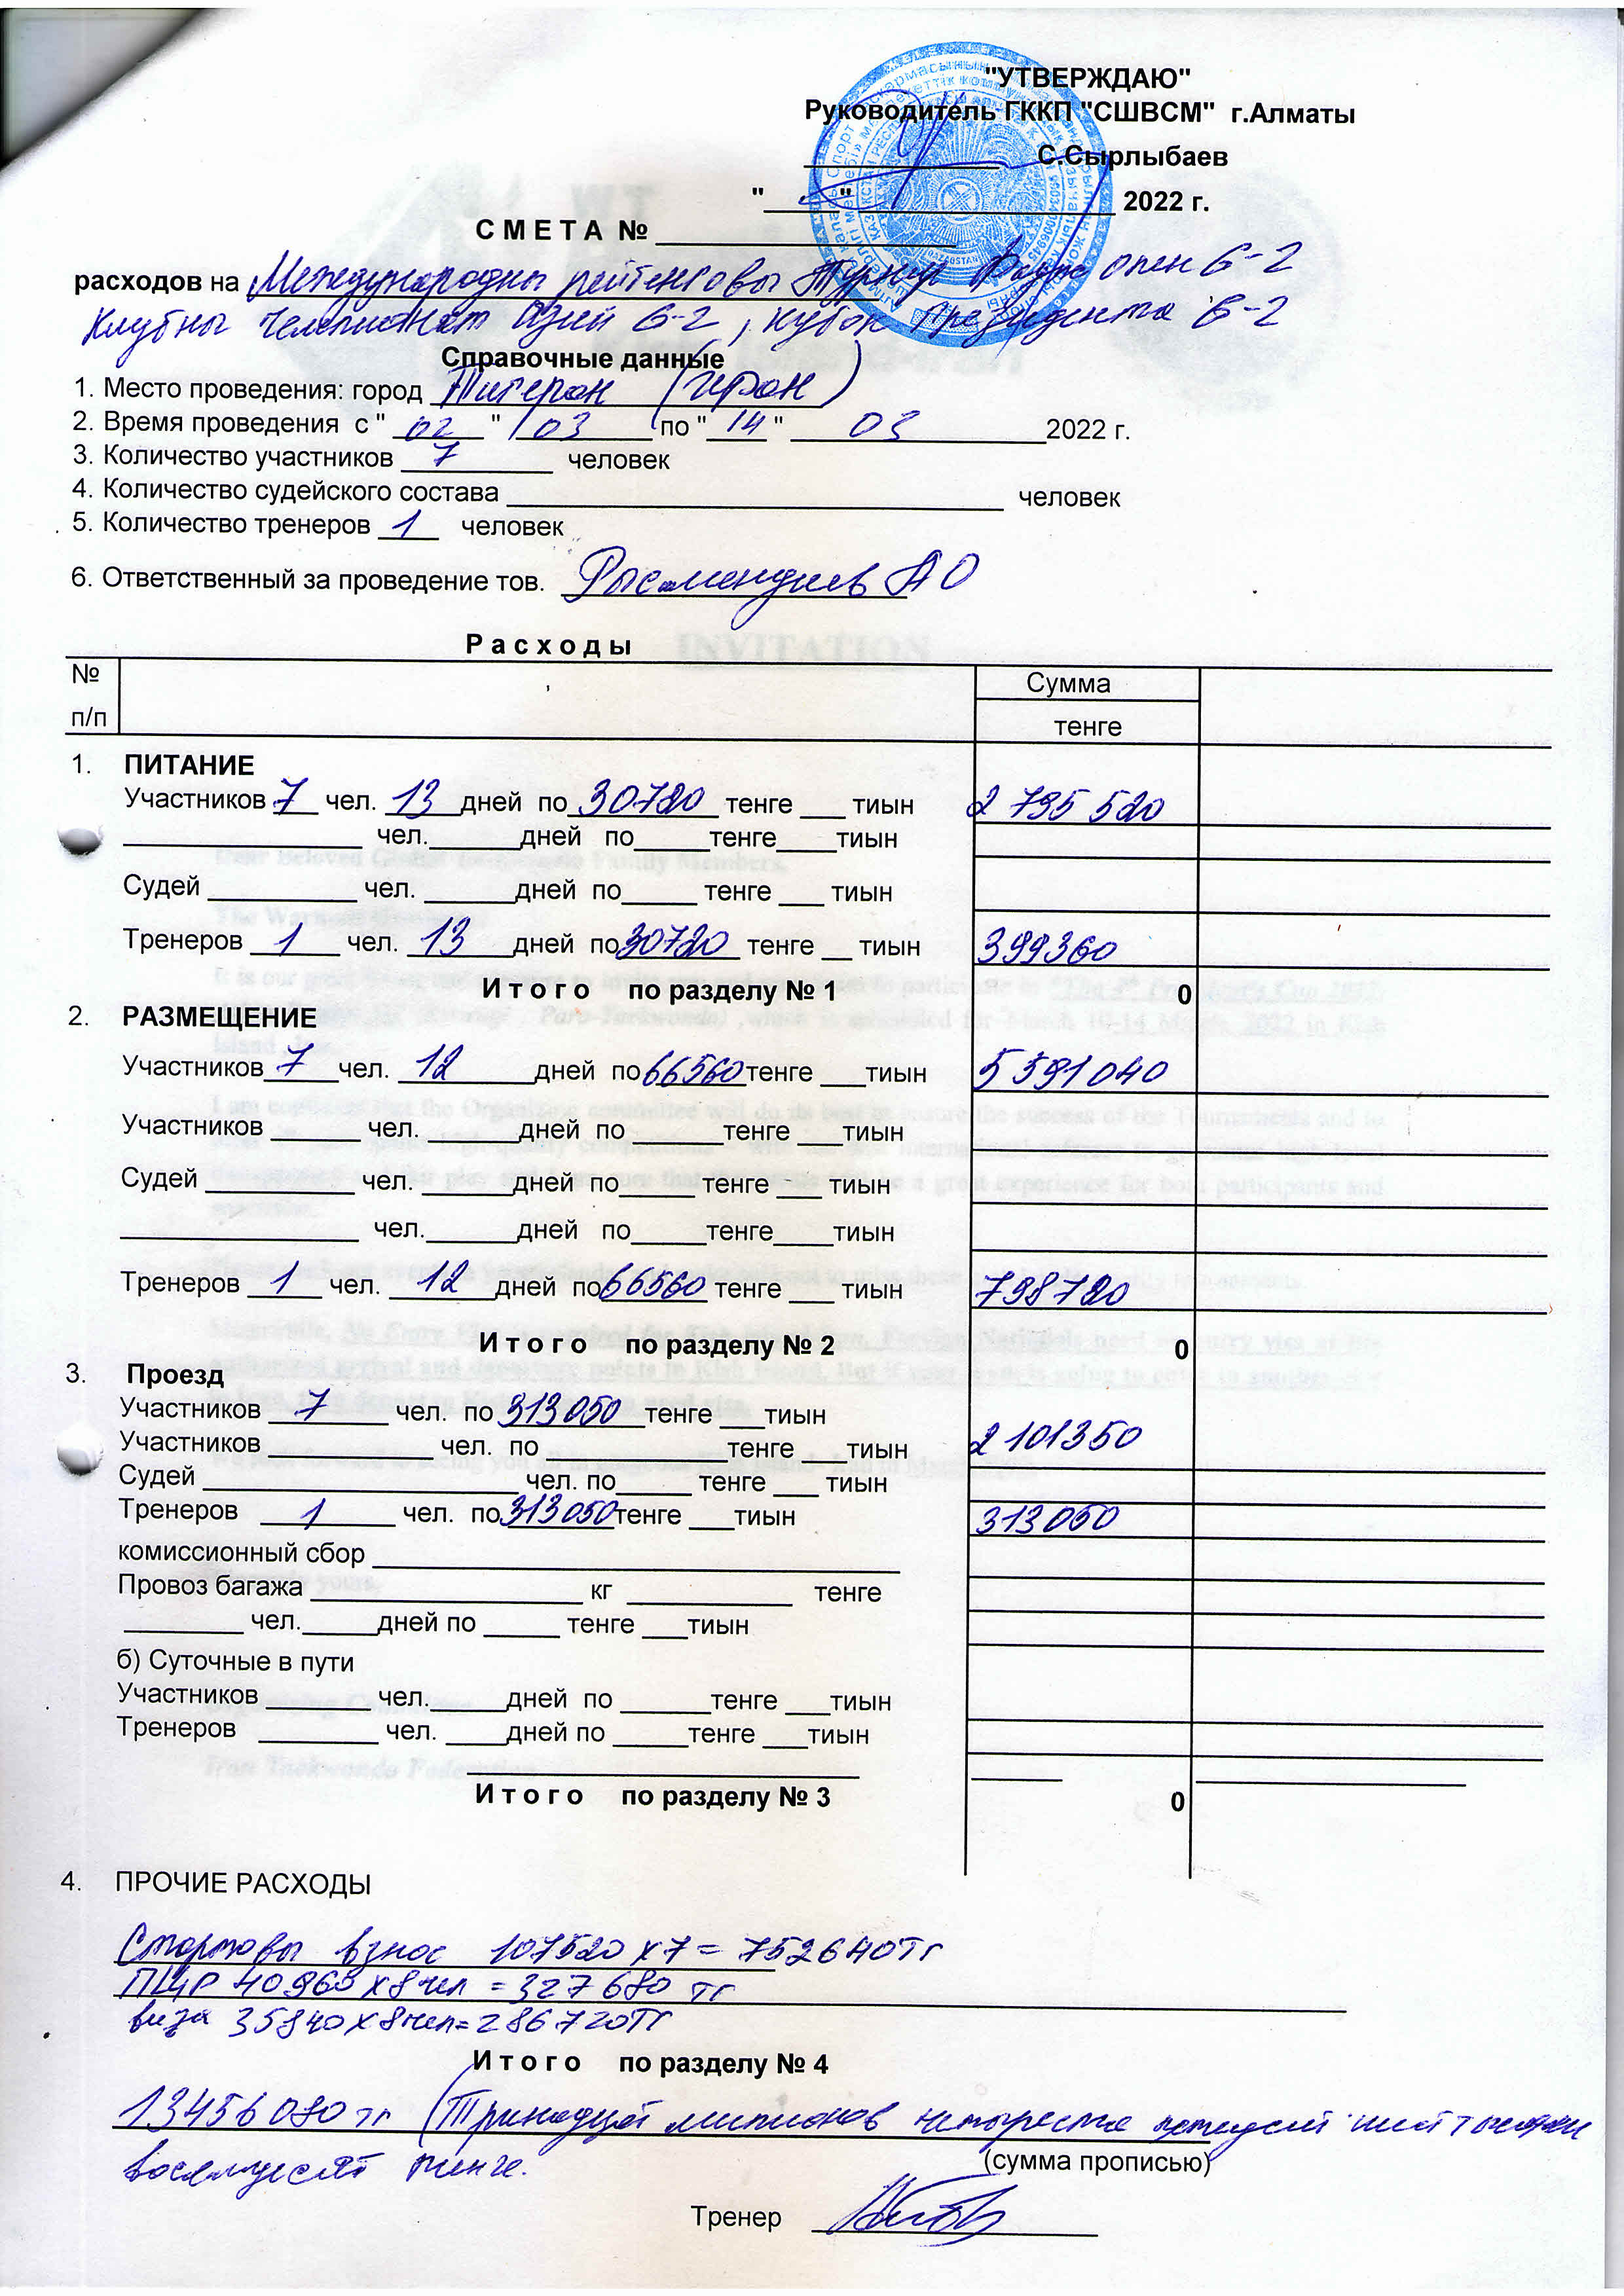 "УТВЕРЖДАЮ"
Руководитель ГККП "СШВСМ" г.Алматы
С.Сырлыбаев
"____"____________ 2022 г.
С М Е Т А № ____________
расходов на Международны рейтенговы Турнир Фаджр опен G-2
Клубны Чемпионат Азии G-2, Кубок президента G-2
Справочные данные
1. Место проведения: город Тигеран (Иран)
2. Время проведения с " 02 " 03 по " 14 " 03 2022 г.
3. Количество участников 7 человек
4. Количество судейского состава ____________ человек
5. Количество тренеров 1 человек
6. Ответственный за проведение тов. Рысмендиев А О
Р а с х о д ы
№ п/п Сумма
тенге
1. ПИТАНИЕ
Участников 7 чел. 13 дней по 30720 тенге ___ тиын 2 795 520
____________ чел.______дней по_____тенге____тиын
Судей __________ чел. ______дней по_____ тенге ___ тиын
Тренеров 1 чел. 13 дней по 30720 тенге __ тиын 399360
И т о г о по разделу № 1 0
2. РАЗМЕЩЕНИЕ
Участников 7 чел. 12 дней по 66560 тенге ___тиын 5 591 040
Участников ______ чел. ______дней по ______тенге ___тиын
Судей __________ чел. ______дней по_____ тенге ___ тиын
____________ чел.______дней по_____тенге____тиын
Тренеров 1 чел. 12 дней по 66560 тенге ___ тиын 798720
И т о г о по разделу № 2 0
3. Проезд
Участников 7 чел. по 313050 тенге ___тиын 2 101350
Участников ____________ чел. по ____________тенге ___ тиын
Судей ____________ чел. по_____ тенге ___ тиын
Тренеров 1 чел. по 313050 тенге ___тиын 313050
комиссионный сбор ____________
Провоз багажа ____________ кг ___________ тенге
________ чел._____дней по _____ тенге ___тиын
б) Суточные в пути
Участников _______ чел. _____дней по ______тенге ___тиын
Тренеров ________ чел. ____дней по _____тенге ___тиын
И т о г о по разделу № 3 0
4. ПРОЧИЕ РАСХОДЫ
Стартовы взнос 107520 x 7 = 752640тг
ПЦР 40960 x 8 чел = 327 680 тг
виза 35840 x 8чел= 286720тг
И т о г о по разделу № 4
13456080 тг (Тринадцат милионов четыреста пятидесят шест тысячи
восемдесят тенге.
(сумма прописью)
Тренер